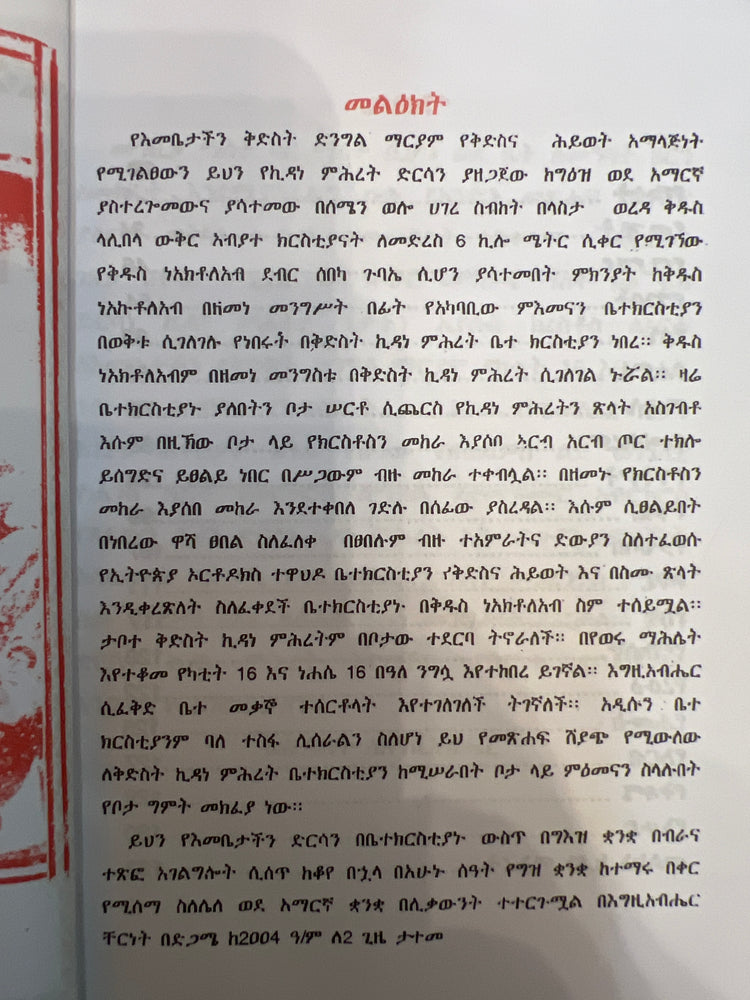 መልዕክት
የእመቤታችን ቅድስት ድንግል ማርያም የቅድስና ሕይወት አማላጅነት
የሚገልፀውን ይህን የኪዳነ ምሕረት ድርሳን ያዘጋጀው ከግዕዝ ወደ አማርኛ
ያስተረጐመውና ያሳተመው በሰሜን ወሎ ሀገረ ስብከት በላስታ ወረዳ ቅዱስ
ላሊበላ ውቅር አብያተ ክርስቲያናት ለመድረስ 6 ኪሎ ሜትር ሲቀር የሚገኘው
የቅዱስ ነአክቶለአብ ደብር ሰበካ ጉባኤ ሲሆን ያሳተመበት ምክንያት ከቅዱስ
ነአኩቶለአብ በዘመነ መንግሥት በፊት የአካባቢው ምእመናን ቤተክርስቲያን
በወቅቱ ሲገለገሉ የነበሩት በቅድስት ኪዳነ ምሕረት ቤተ ክርስቲያን ነበረ። ቅዱስ
ነአክቶለአብም በዘመነ መንግስቱ በቅድስት ኪዳነ ምሕረት ሲገለገል ኑሯል። ዛሬ
ቤተክርስቲያኑ ያለበትን ቦታ ሠርቶ ሲጨርስ የኪዳነ ምሕረትን ጽላት አስገብቶ
እሱም በዚኸው ቦታ ላይ የክርስቶስን መከራ እያሰበ ኣርብ አርብ ጦር ተክሎ
ይሰግድና ይፀልይ ነበር በሥጋውም ብዙ መከራ ተቀብሏል። በዘመኑ የክርስቶስን
መከራ እያሰበ መከራ እንደተቀበለ ገድሉ በሰፊው ያስረዳል። እሱም ሲፀልይበት
በነበረው ዋሻ ፀበል ስለፈለቀ በፀበሉም ብዙ ተአምራትና ድውያን ስለተፈወሱ
የኢትዮጵያ ኦርቶዶክስ ተዋህዶ ቤተክርስቲያን የቅድስና ሕይወት እና በስሙ ጽላት
እንዲቀረጽለት ስለፈቀደች ቤተክርስቲያኑ በቅዱስ ነአክቶለአብ ስም ተሰይሟል።
ታቦተ ቅድስት ኪዳነ ምሕረትም በቦታው ተደርባ ትኖራለች። በየወሩ ማሕሌት
እየተቆመ የካቲት 16 እና ነሐሴ 16 በዓለ ንግሷ እየተከበረ ይገኛል። እግዚአብሔር
ሲፈቅድ ቤተ መቃኞ ተሰርቶላት እየተገለገለች ትገኛለች። አዲሱን ቤተ
ክርስቲያንም ባለ ተስፋ ሊሰራልን ስለሆነ ይህ የመጽሐፍ ሽያጭ የሚውለው
ለቅድስት ኪዳነ ምሕረት ቤተክርስቲያን ከሚሠራበት ቦታ ላይ ምዕመናን ስላሉበት
የቦታ ግምት መክፈያ ነው።
ይህን የእመቤታችን ድርሳን በቤተክርስቲያኑ ውስጥ በግእዝ ቋንቋ በብራና
ተጽፎ አገልግሎት ሲሰጥ ከቆየ በኂላ በአሁኑ ሰዓት የግዝ ቋንቋ ከተማሩ በቀር
የሚሰማ ስለሌለ ወደ አማርኛ ቋንቋ በሊቃውንት ተተርጉሟል በእግዚአብሔር
ቸርነት በድጋሜ ከ2004 ዓ/ም ለ2 ጊዜ ታተመ